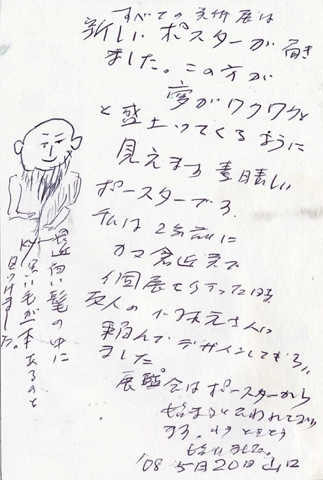 すべての美術展は
新しいポスターが届き
ました。この方が
夢がワクワクと
と盛上ってくるように
見えます素晴しい
ポースターです。
私は2年前に
カマ倉近美で
個展を行った時
友人の
頼んでデザインしてもらい
ました
展覧会はポースターから
始まると云われており
ます。
始りました。
'08 5月20日 山口
最近白い髭の中に
黒い毛が一本あるのを
見つけました。